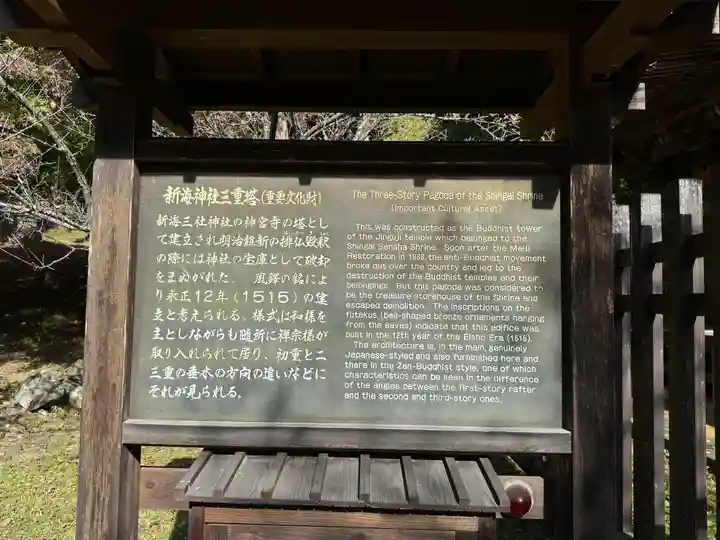 新海神社三重塔(重要文化財)
新海三社神社の神宮寺の塔とし
て建立され明治維新の排仏毀釈
の際には神社の宝庫として破却
をまぬがれた。 風鐸の銘によ
り永正12年(1515)の建
立と考えられる。様式は和様を
主としながらも随所に禅宗様が
取り入れられて居り、初重と二
三重の垂木の方向の違いなどに
それが見られる。
The Three-Story Pagoda of the Shingai Shrine
(Important Cultural Asset)
This was constructed as the Buddhist tower
of the Jinguji temple which belonged to the
Shingai Sansha Shrine. Soon after the Meiji
Restoration in 1868, the anti-Buddhist movement
broke out over the country and led to the
destruction of the Buddhist temples and their
belongings. But this pagoda was considered to
be the treasure storehouse of the Shrine and
escaped demolition. The inscriptions on the
futakus (bell-shaped bronze ornaments hanging
from the eaves) indicate that this edifice was
built in the 12th year of the Eisho Era (1515).
The architecture is, in the main, genuinely
Japanese-styled and also furnished here and
there in the Zen-Buddhist style, one of which
characteristics can be seen in the difference
of the angles between the first-story rafter
and the second and third-story ones.